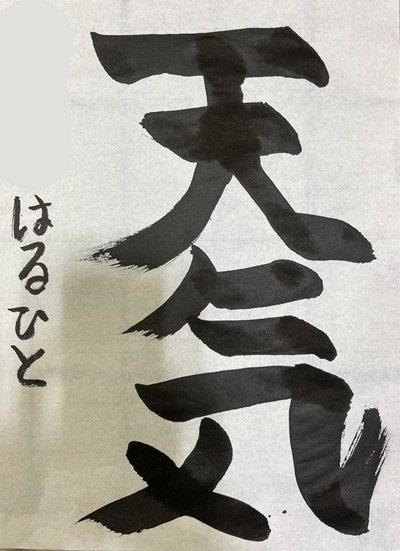 天気
はるひと